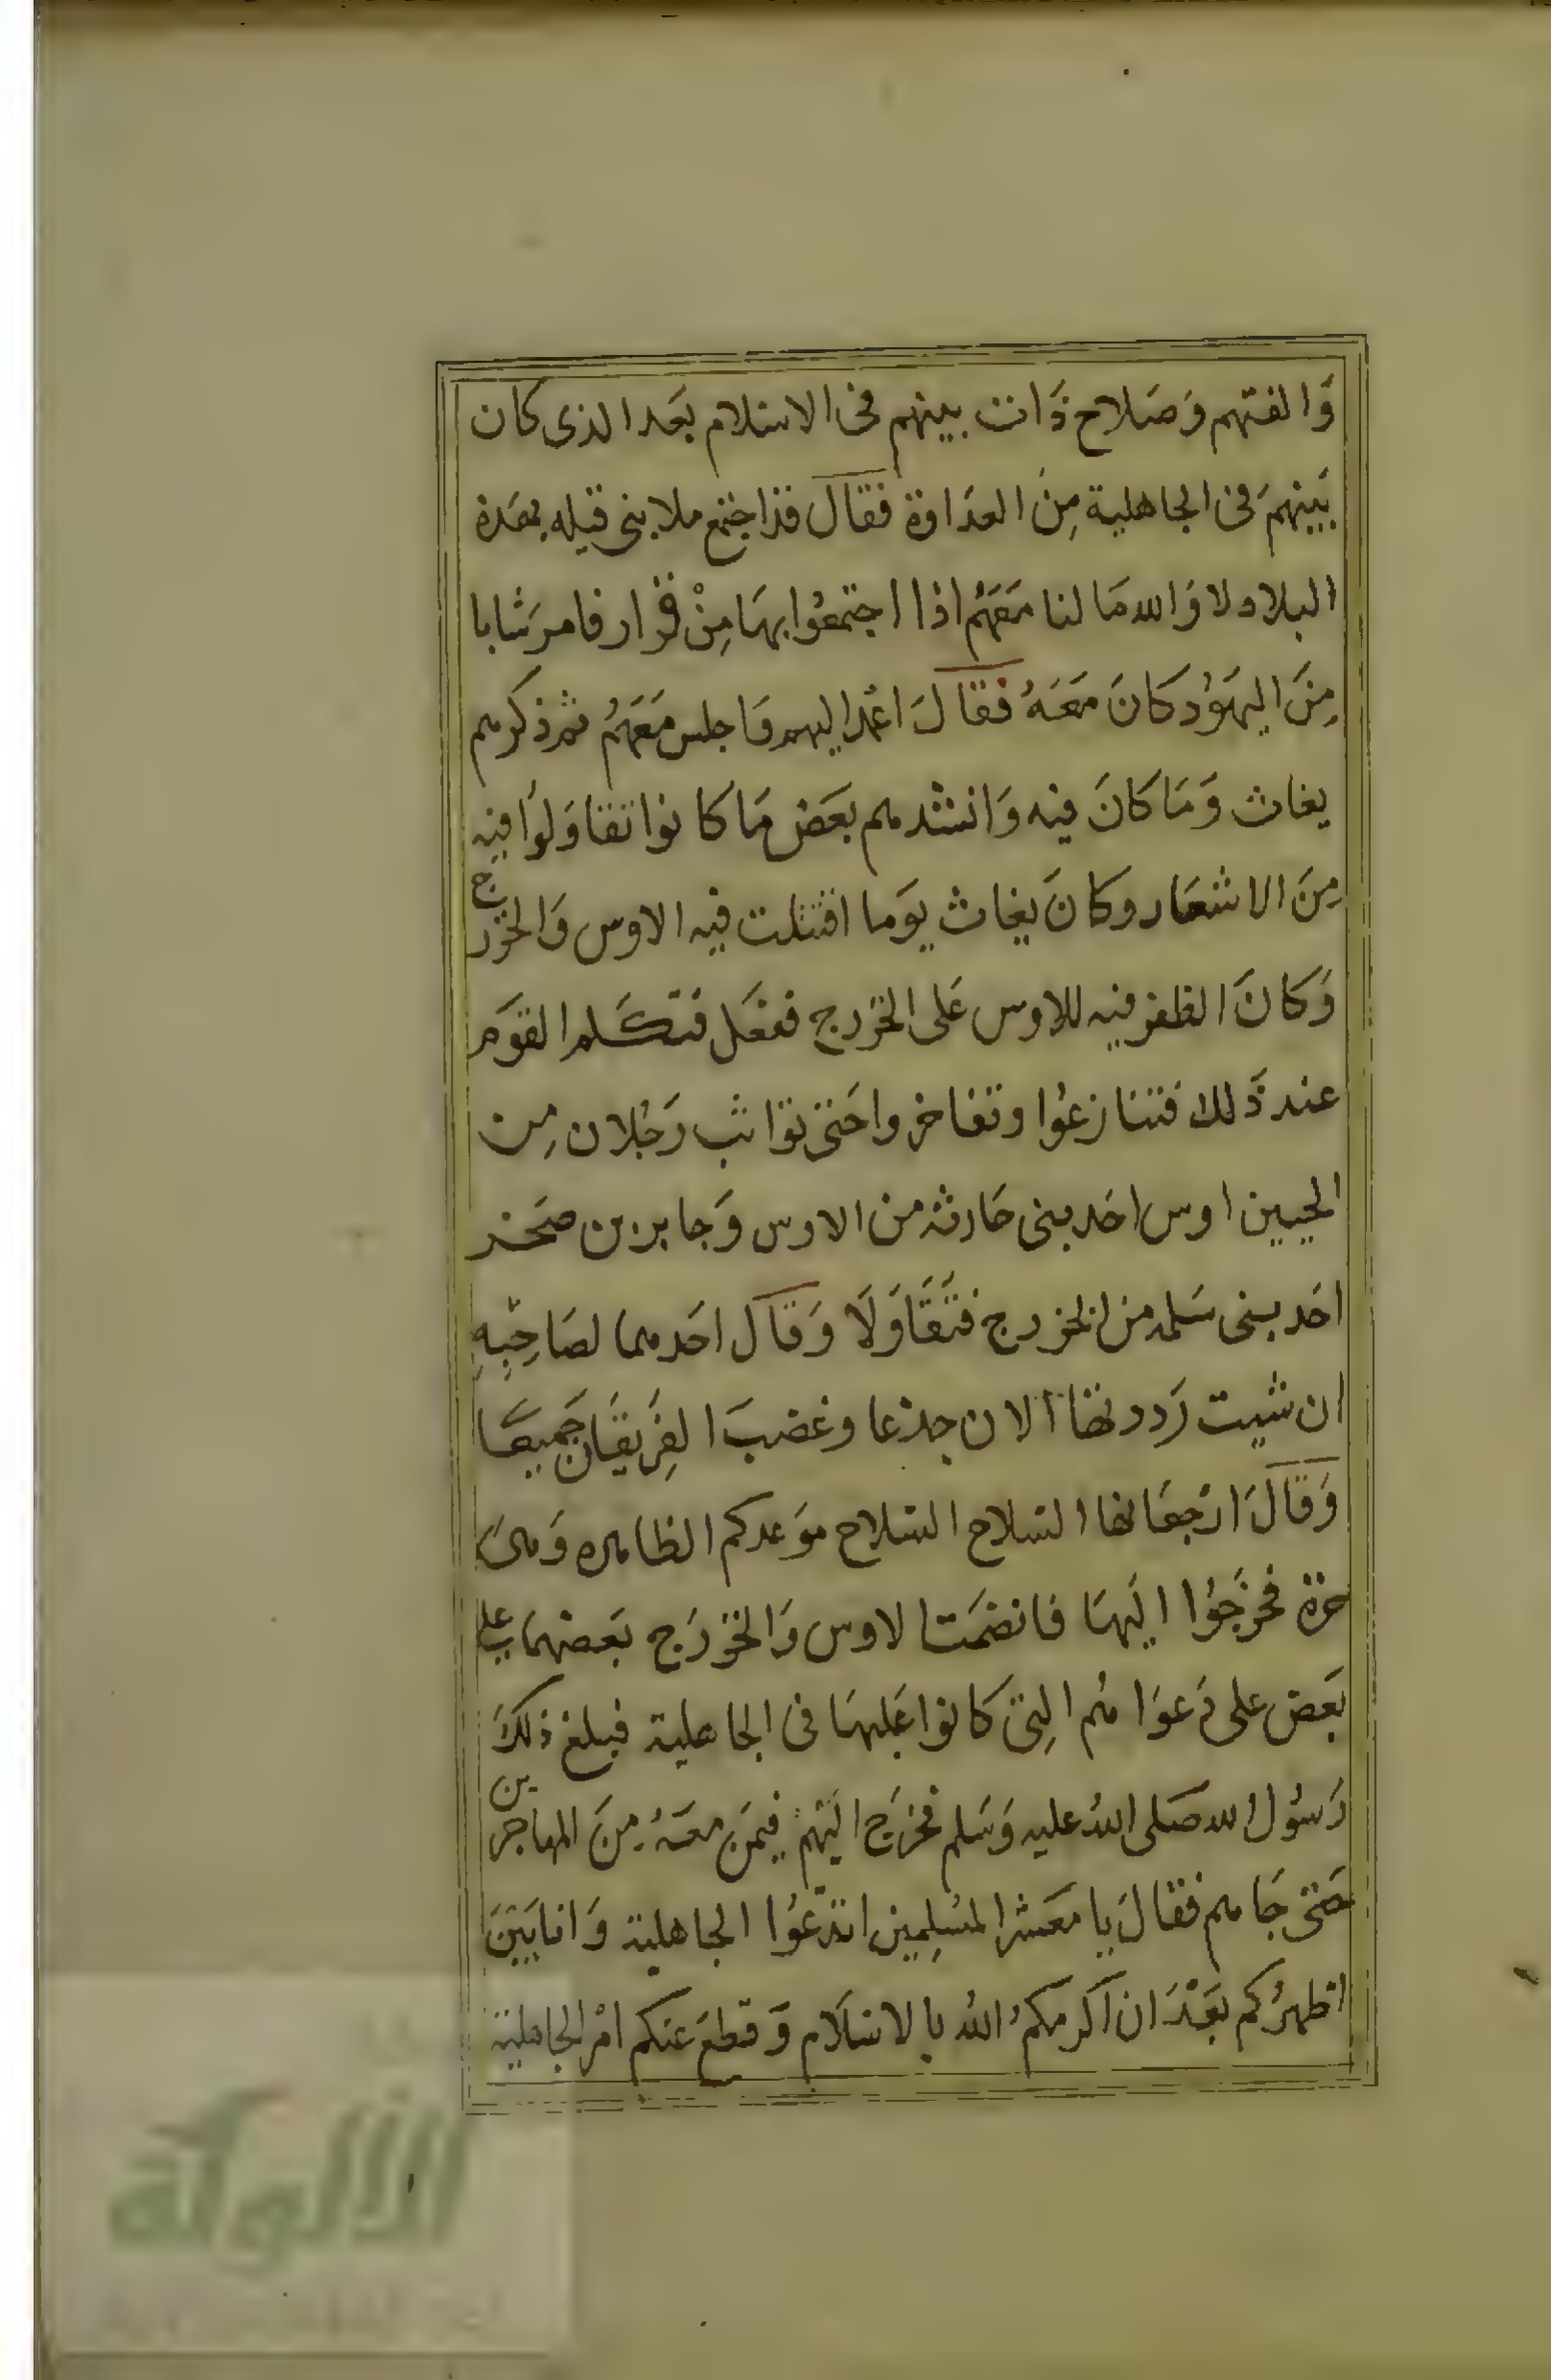 وَالفتهم وَصَلاح ذَات بينهم فى الاسلام بَعَد الذى كان
بَينهمَ فى الجاهلية مِنَ العدَاوة فقال قد اجتمع ملا بنى قيله بهَذه
البلاد لا وَالله مَا لنا مَعَهُم اذا اجتمعُوا بهَا مِنْ قرَار فامر شَابا
مِنَ اليهَوُد كانَ مَعَهُ فقالَ اعُمد اليهم وَاجلس مَعَهُم ثم ذكرهم
يغاث وَمَا كانَ فيه وَانشدهم بَعَض مَا كانوا تقاوَلوُا فيه
مِنَ الاشعَار وكانَ يغاث يوَما اقتتلت فيه الاوس وَالخزرج
وَكانَ الظفر فيه للاوس عَلى الخزرج ففعَل فتكَلم القوَم
عند ذَلك فتنازعُوا وتفاخروا حَتى توَاثب رَجُلان مِن
الحيين اوس احَد بنى حَارثه من الاوس وَجابر بن صَخر
احَد بنى سَلمه من الخزرج فتَقَاوَلَا وَقال احَدهما لصَاحِبِهِ
ان شيت رَددتها الان جذعا وغضبَ الفِرَيقَان جَميعًا
وَقالَ ارْجعَالها السَلاح السَلاح موَعدكم الظاهره وَهىَ
حرة فخرَجَوُا اليَهَا فانضمَت الاوس وَالخزرَج بَعضهَا على
بَعَض على دَعوَاهُم الِتى كانوا عَليهَا فى الجاهلية فبلغ ذلكَ
رَسوُل الله صَلى اللهُ عليه وَسَلم فخرَج اليَهمْ فيمَن معَهُ مِنَ المهاجرين
حَتى جَاهم فقالَ يا مَعَشر المسُلِمين اتدّعوُا الجاهلية وَانا بَيَنَ
اظهرُكم بَعَدَ ان اكرمكمُ اللهُ بالاسَلَام وَقطعَ عنكم امْر الجاهلية
الألوكة